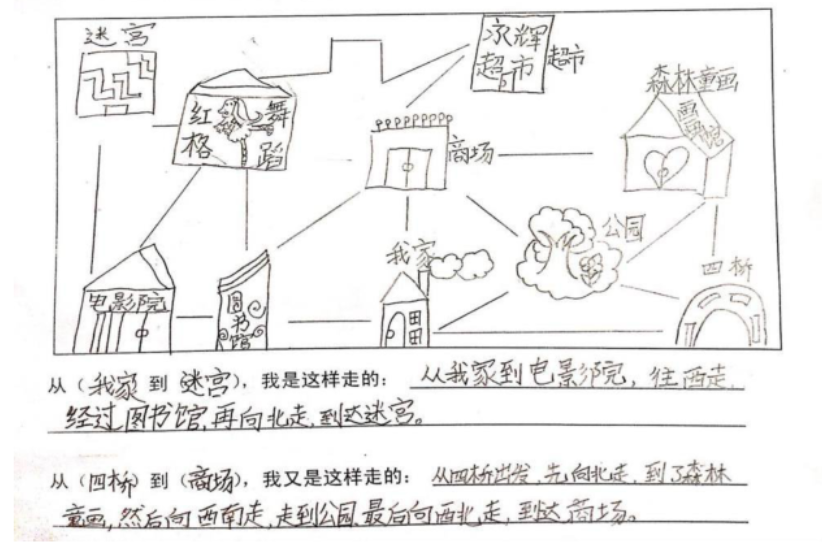 迷宫
永辉
超市
超市
森林童画
画
画
馆
红 舞
格 蹈
商场
公园
我家
四桥
电影院
图
书
馆
从（我家 到 迷宫），我是这样走的：从我家到电影院，往西走，
经过图书馆，再向北走，到达迷宫。
从（四桥）到（商场），我又是这样走的：从四桥出发，先向北走，到了森林
童画，然后向西南走，走到公园，最后向西北走，到达商场。